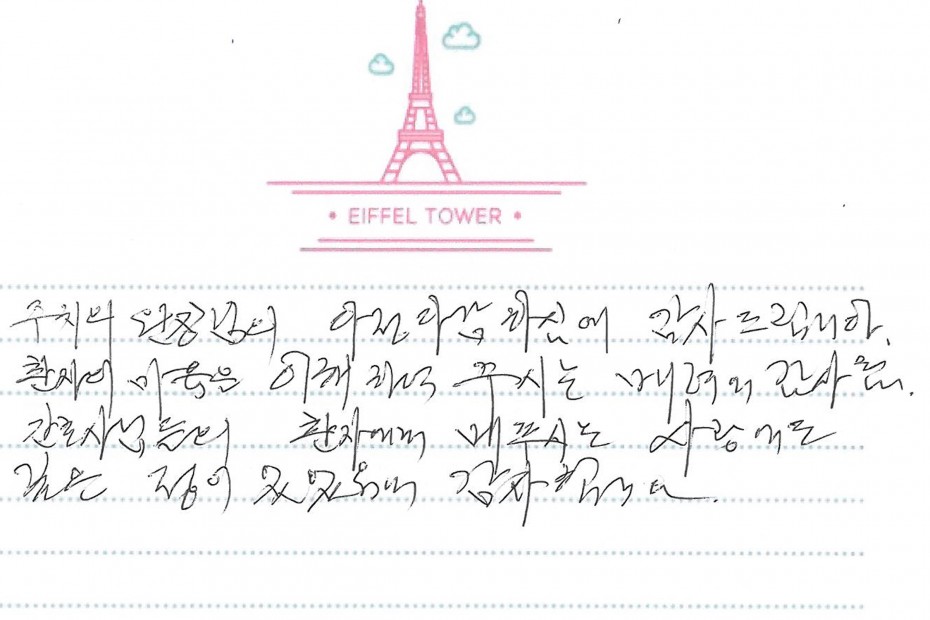 EIFFEL TOWER
주치의 원장님의 자상하심에 감사드립니다.
환자의 마음을 이해하여 주시는 배려에 감사
간호사님들의 환자에게 베푸시는 사랑에도
깊은 정이 있었음에 감사합니다.